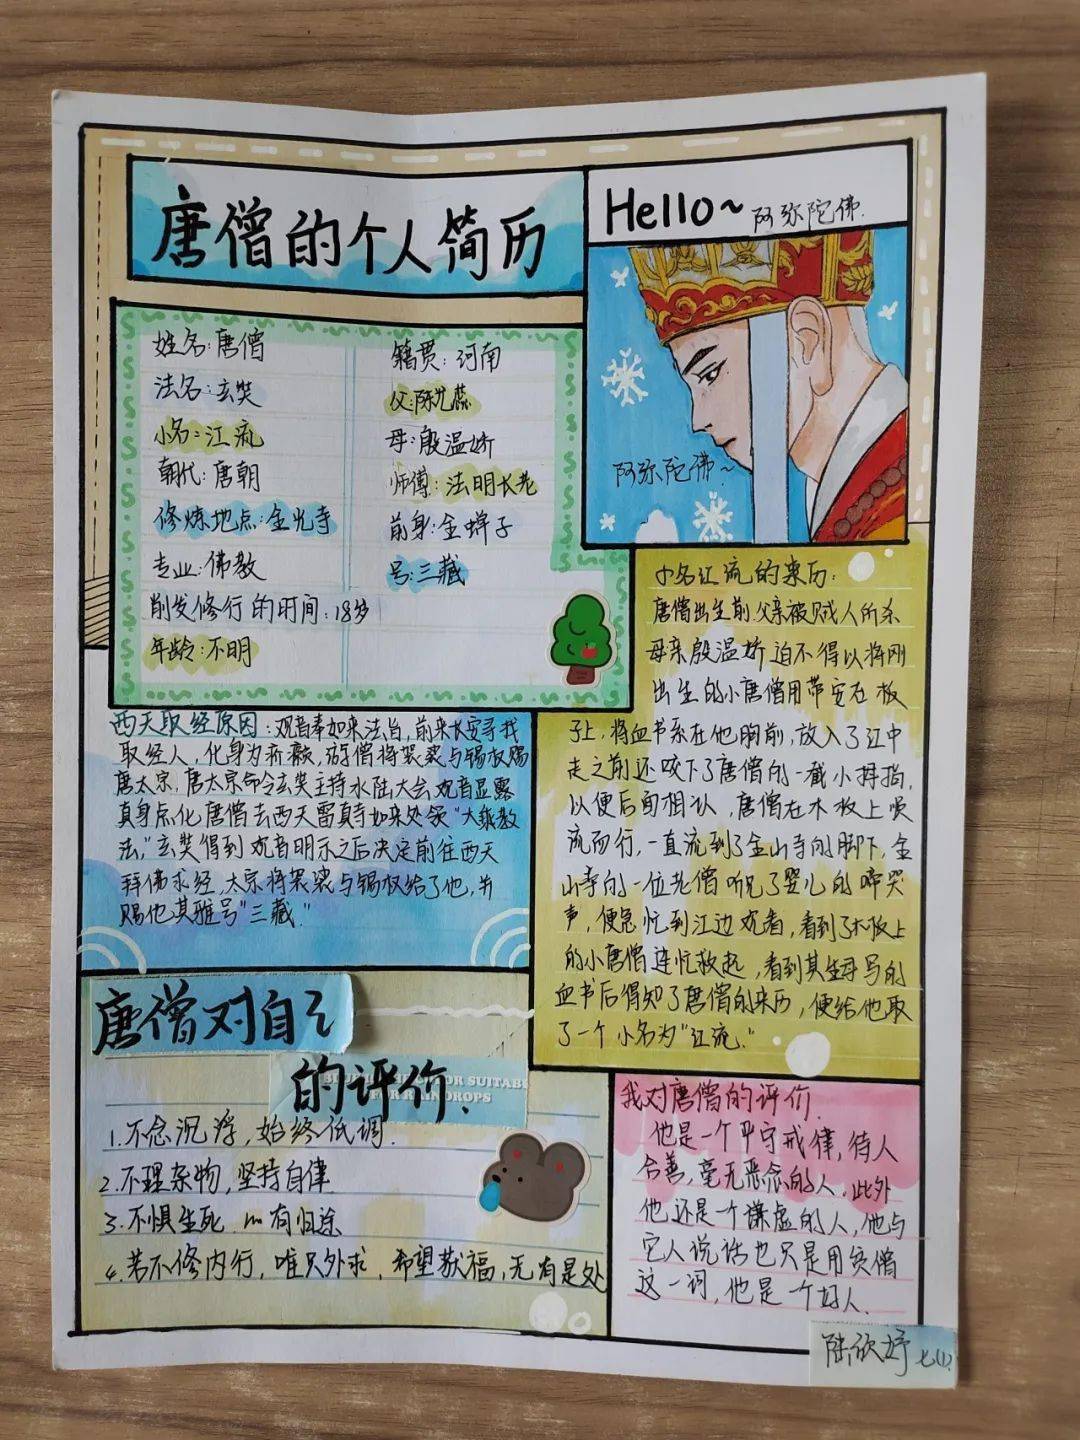 唐僧的个人简历
Hello~ 阿弥陀佛.
阿弥陀佛~
姓名:唐僧
法名:玄奘
小名:江流
朝代:唐朝
修炼地点:金光寺
专业:佛教
削发修行的时间:18岁
年龄:不明
籍贯:河南
父:陈光蕊
母:殷温娇
师傅:法明长老
前身:金蝉子
号:三藏
西天取经原因:观音奉如来法旨,前来长安寻找
取经人,化身为疥癞,游僧将袈裟与锡杖赐
唐太宗,唐太宗命令玄奘主持水陆大会观音显露
真身点化唐僧去西天雷真寺如来处领"大乘教
法,"玄奘得到观音明示之后决定前往西天
拜佛求经,太宗将袈裟与锡杖给了他,并
赐他其雅号"三藏."
小名江流的来历:
唐僧出生前.父亲被贼人所杀
母亲殷温娇迫不得以将刚
出生的小唐僧用带安在板
子上,将血书系在他胸前,放入了江中
走之前还咬下了唐僧的一截小拇指,
以便后面相认,唐僧在木板上顺
流而行,一直流到了金山寺的脚下,金
山寺的一位老僧听见了婴儿的啼哭
声,便急忙到江边观看,看到了木板上
的小唐僧连忙救起,看到其生母写的
血书后得知了唐僧的来历,便给他取
了一个小名为"江流."
唐僧对自己
的评价.
FOR RAINDROPS
1.不念沉浮,始终低调.
2.不理杂物,坚持自律
3.不惧生死 心有归途
4.若不修内行,唯只外求,希望获福,无有是处
我对唐僧的评价.
他是一个严守戒律,待人
合善,毫无恶念的人,此外
他还是一个谦虚的人,他与
它人说话也只是用贫僧
这一词,他是一个好人.
陆欣妤 七(1).